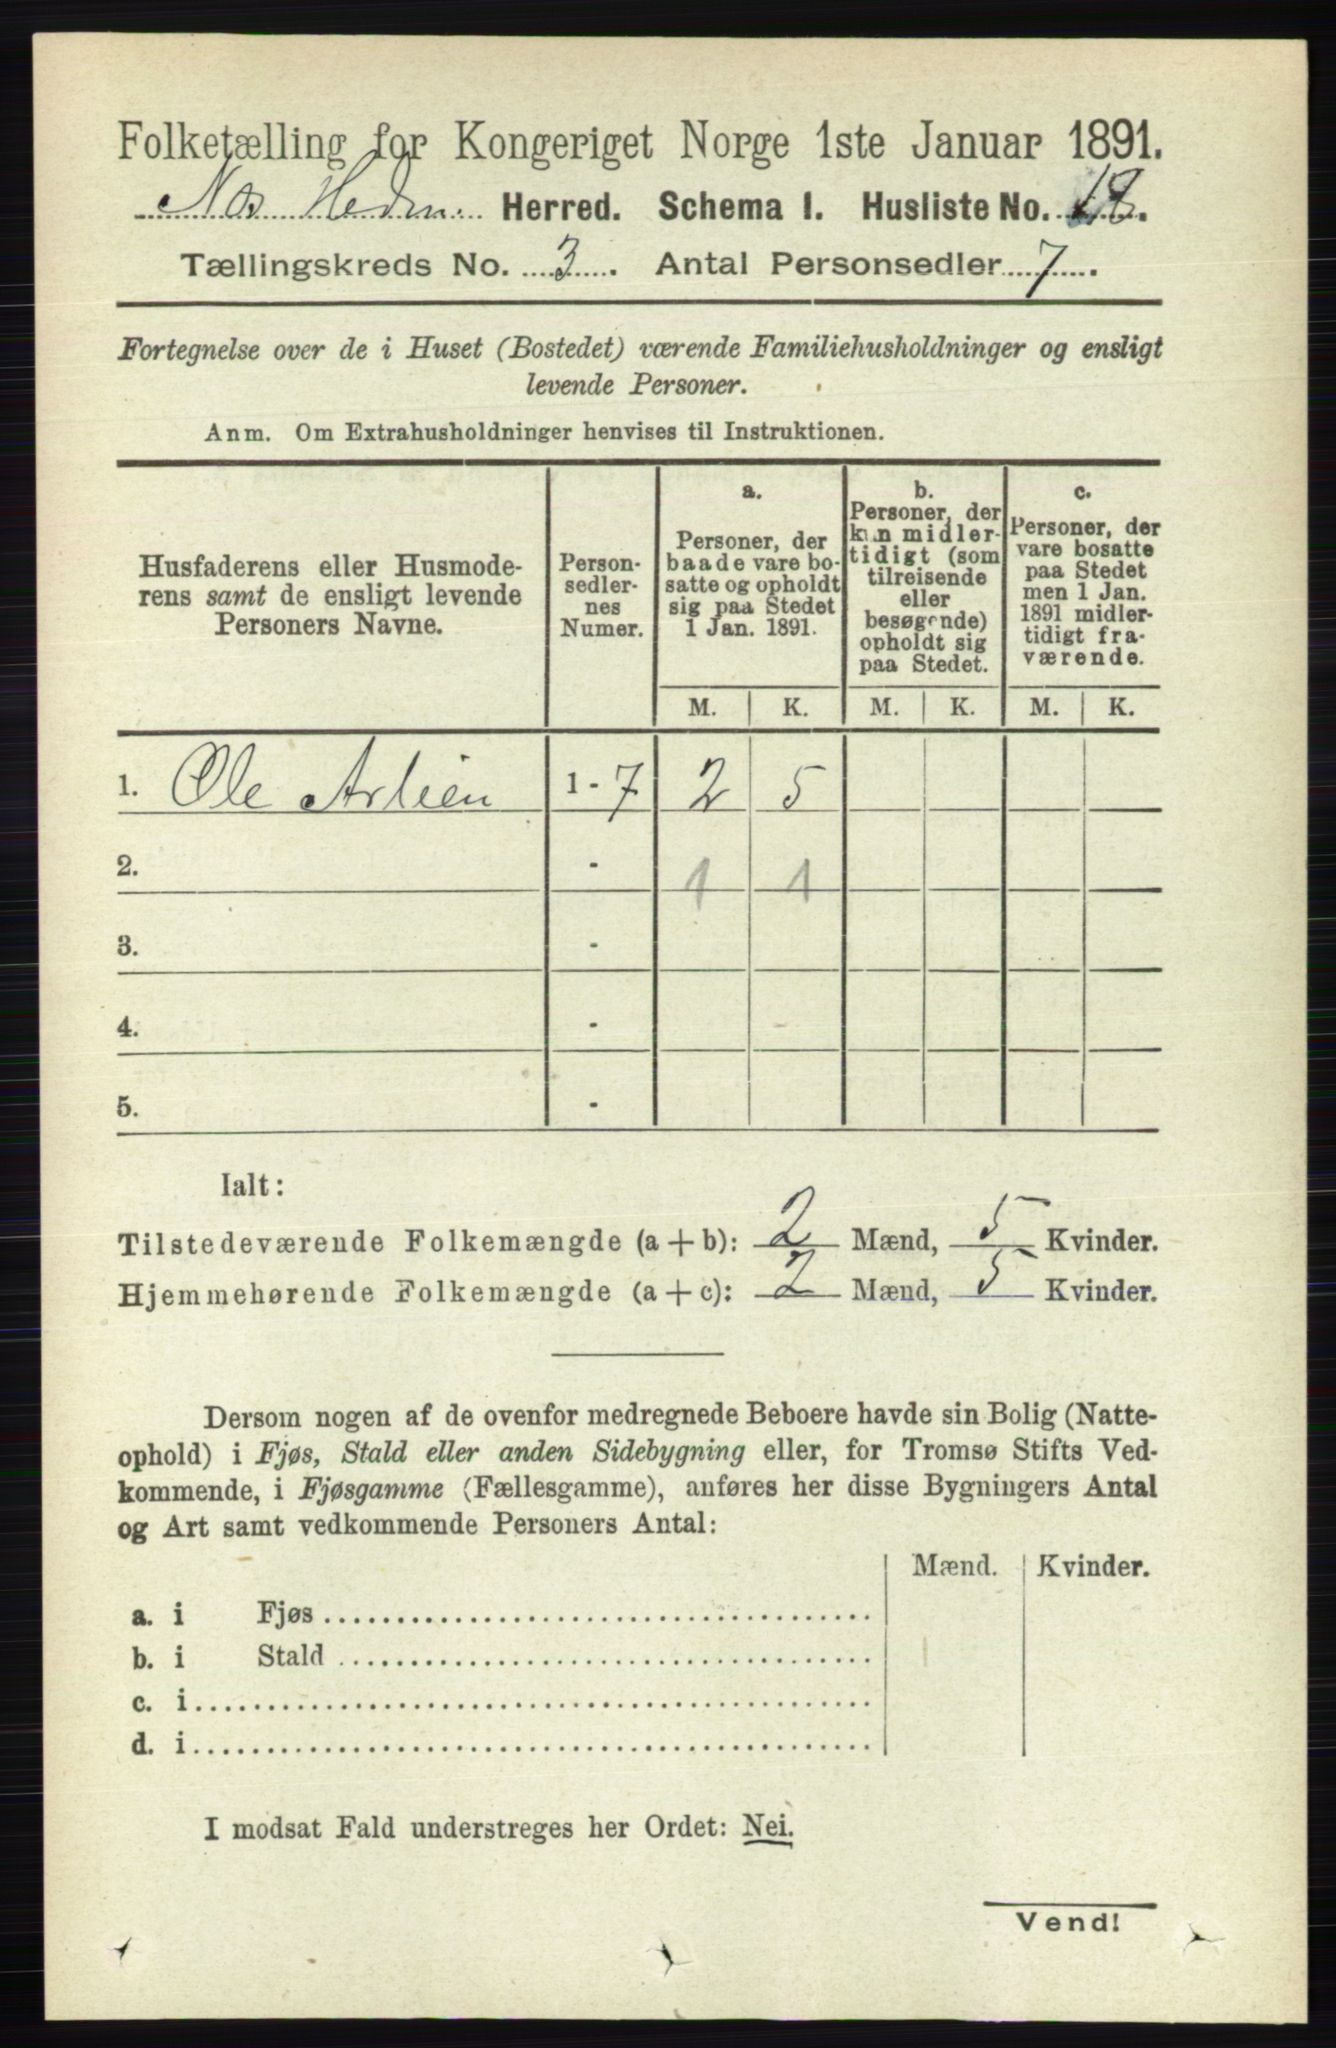 Folketælling for Kongeriget Norge 1ste Januar 1891.
Nes Hedm. Herred. Schema I. Husliste No. 18.
Tællingskreds No. 3. Antal Personsedler 7.
Fortegnelse over de i Huset (Bostedet) værende Familiehusholdninger og ensligt
levende Personer.
Anm. Om Extrahusholdninger henvises til Instruktionen.
Husfaderens eller Husmode-
rens samt de ensligt levende
Personers Navne.
Person-
sedler-
nes
Numer.
a.
Personer, der
baade vare bo-
satte og opholdt
sig paa Stedet
1 Jan. 1891.
b.
Personer, der
kun midler-
tidigt (som
tilreisende
eller
besøgende)
opholdt sig
paa Stedet.
c.
Personer, der
vare bosatte
paa Stedet
men 1 Jan.
1891 midler-
tidigt fra-
værende.
M. K. M. K. M. K.
1. Ole Arlien 1 - 7 2 5
2. - 1 1
3. -
4. -
5. -
Ialt:
Tilstedeværende Folkemængde (a + b): 2 Mænd, 5 Kvinder.
Hjemmehørende Folkemængde (a + c): 2 Mænd, 5 Kvinder.
Dersom nogen af de ovenfor medregnede Beboere havde sin Bolig (Natte-
ophold) i Fjøs, Stald eller anden Sidebygning eller, for Tromsø Stifts Ved-
kommende, i Fjøsgamme (Fællesgamme), anføres her disse Bygningers Antal
og Art samt vedkommende Personers Antal:
Mænd. Kvinder.
a. i Fjøs
b. i Stald
c. i
d. i
I modsat Fald understreges her Ordet: Nei.
Vend!